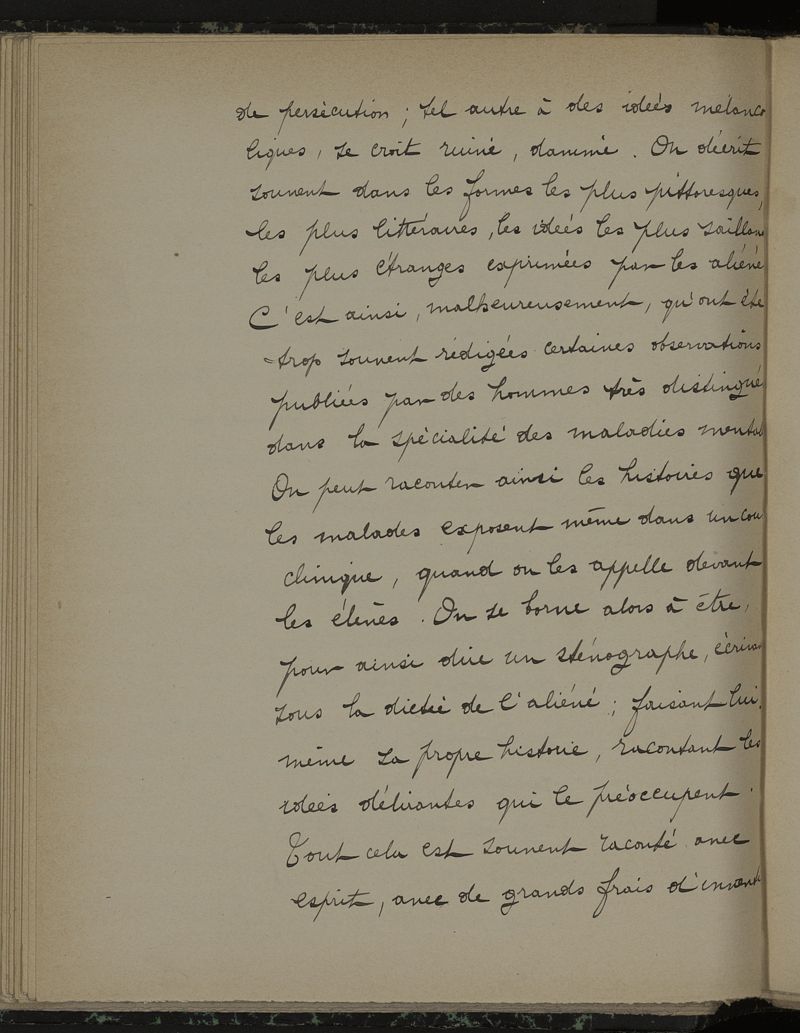 de persécution ; tel autre à des idées mélanco
liques, se croit ruiné, damné. On décrit
souvent dans les formes les plus pittoresques,
les plus littéraires, les idées les plus saillan
les plus étranges exprimées par les aliéné
C'est ainsi, malheureusement, qu'ont été
trop souvent rédigées certaines observations
publiées par des hommes très distingué
dans la spécialité des maladies mental
On peut raconter ainsi les histoires que
les malades exposent même dans un cou
clinique, quand on les appelle devant
les élèves. On se borne alors à être,
pour ainsi dire un sténographe, écrivan
sous la dictée de l'aliéné ; faisant lui-
même sa propre histoire, racontant les
idées délirantes qui le préoccupent.
Tout cela est souvent raconté avec
esprit, avec de grands frais d'invent